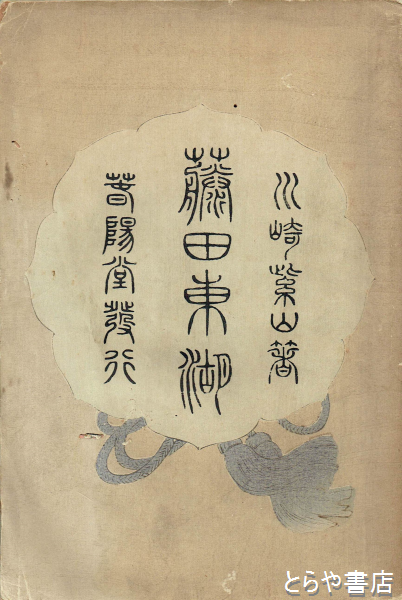 川崎紫山著
藤田東湖
春陽堂發行
とらや書店